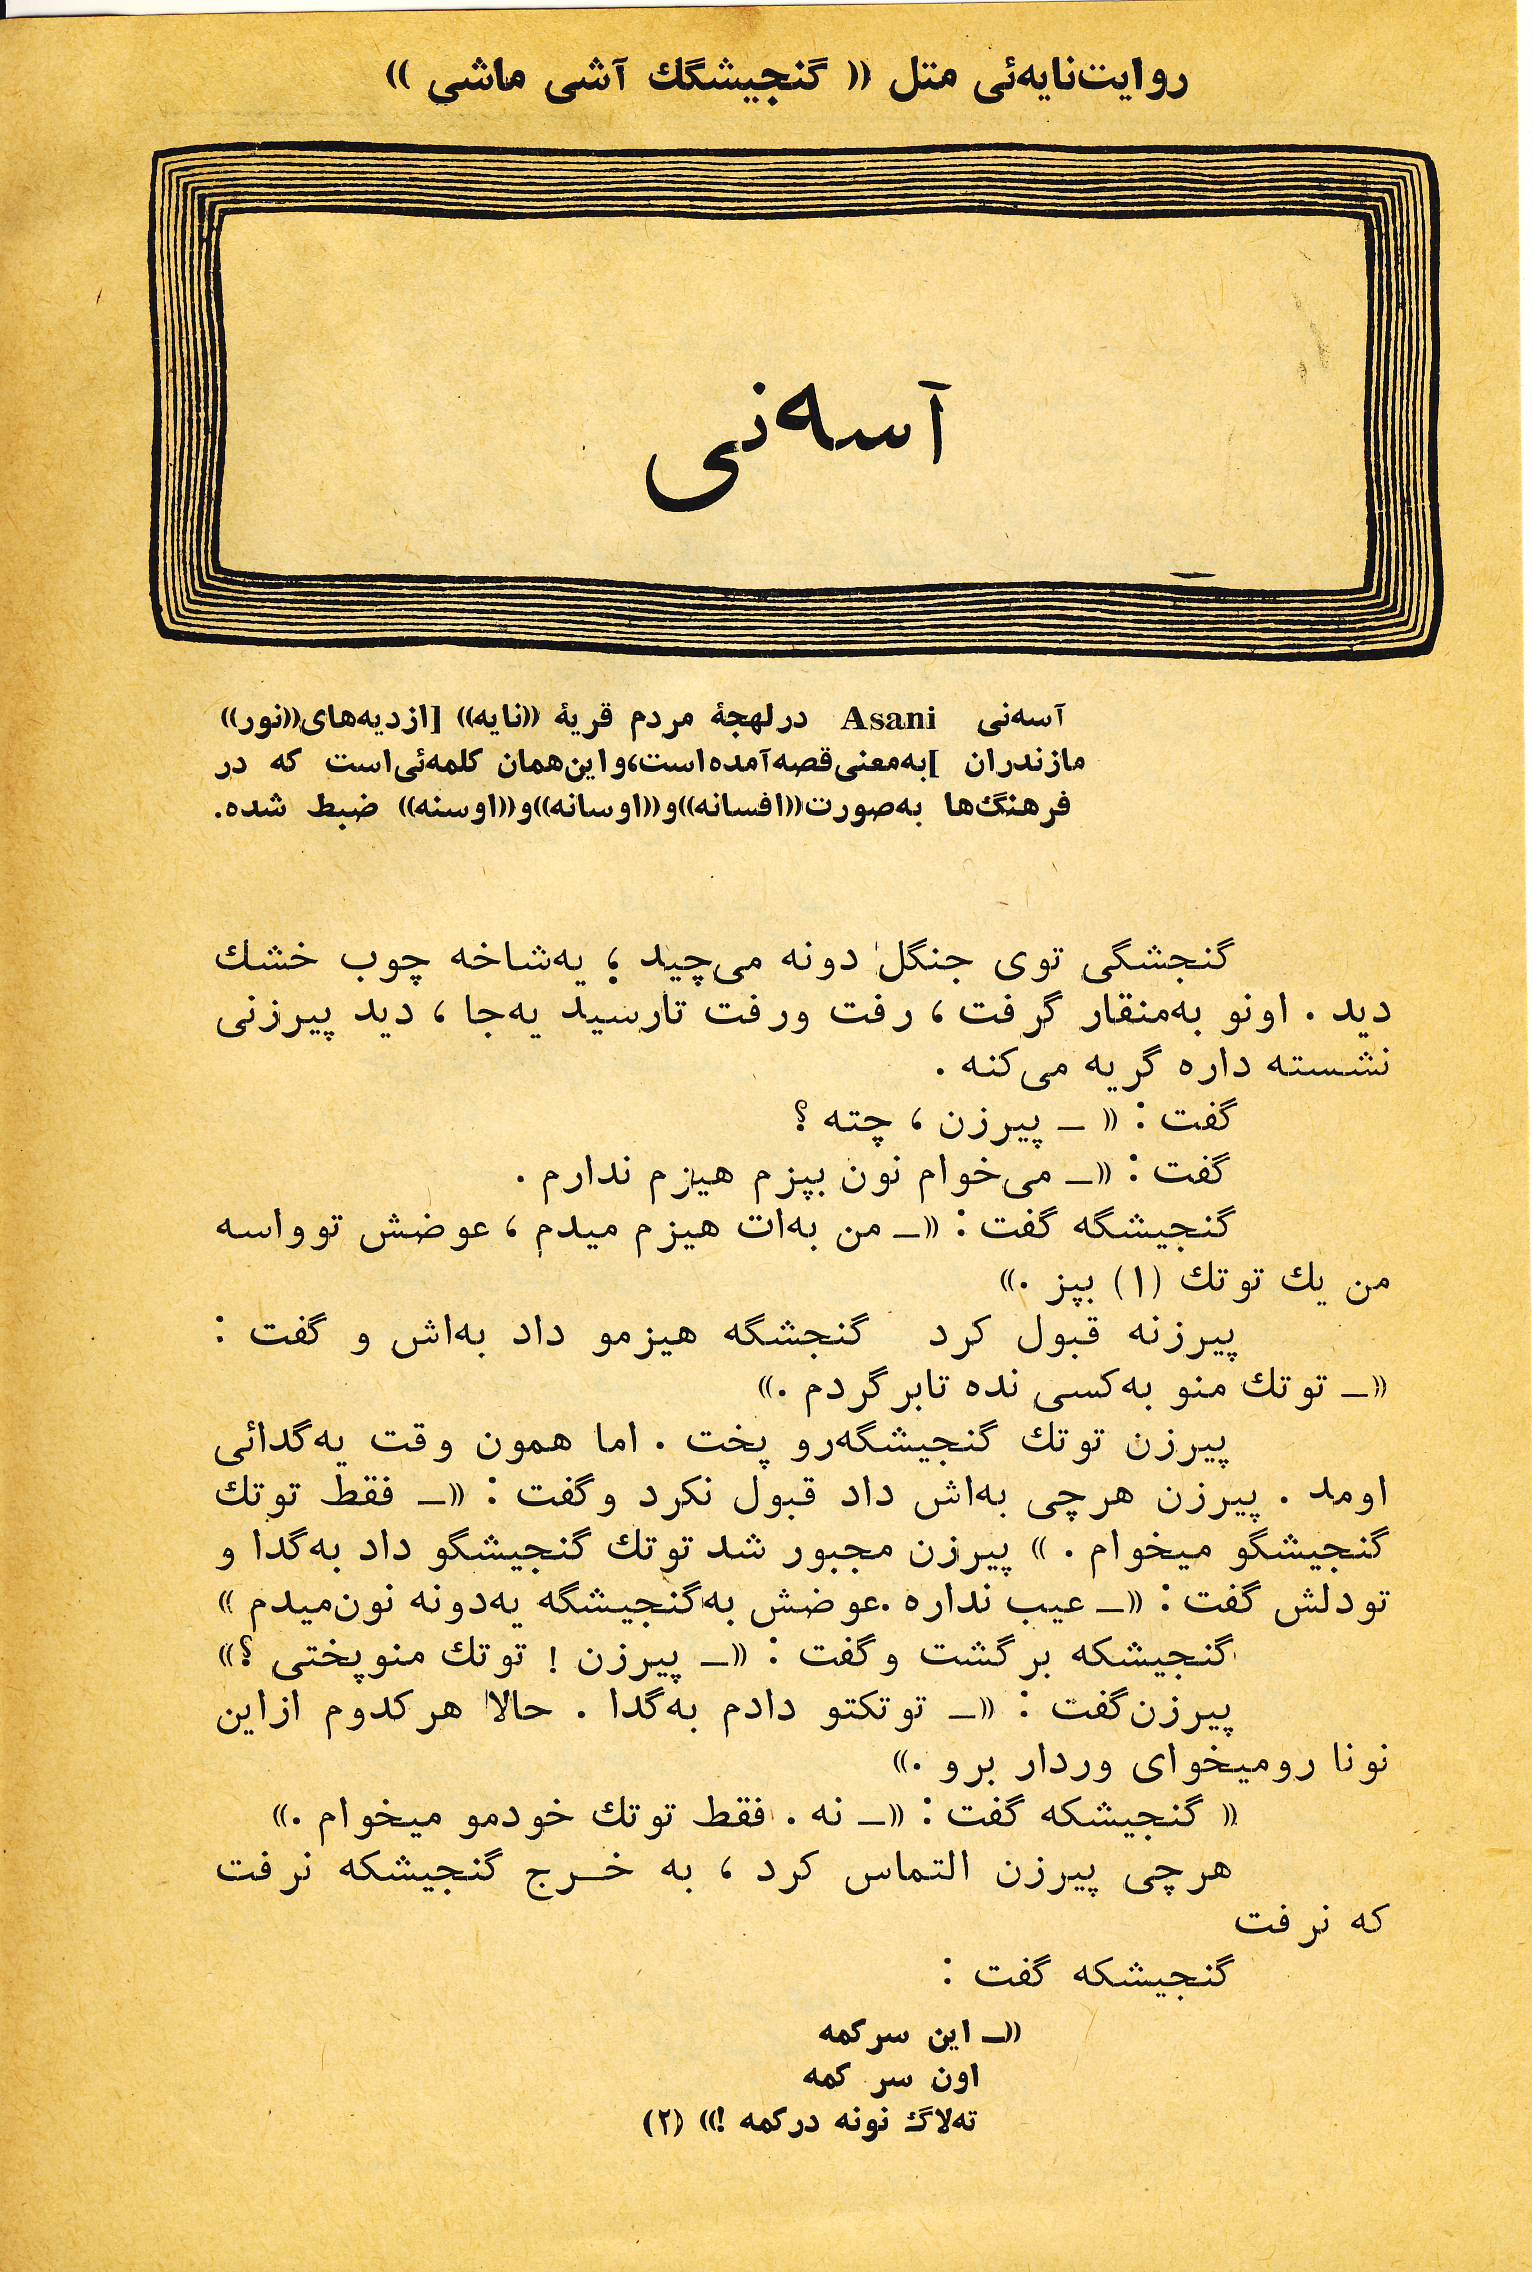 روایت‌نایه‌ئی متل «گنجیشگك آشی ماشی»
آسه‌نی
آسه‌نی Asani درلهجهٔ مردم قریهٔ «نایه» [ازدیه‌های«نور»
مازندران ]به‌معنی‌قصه‌آمده‌است،واین‌همان کلمه‌ئی‌است که در
فرهنگ‌ها به‌صورت«افسانه»و«اوسانه»و«اوسنه» ضبط شده.
گنجشگی توی جنگل دونه می‌چید ؛ یه‌شاخه چوب خشك
دید . اونو به‌منقار گرفت ، رفت ورفت تارسید یه‌جا ، دید پیرزنی
نشسته داره گریه می‌کنه .
گفت : « ــ پیرزن ، چته ؟
گفت : «ــ می‌خوام نون بپزم هیزم ندارم .
گنجیشگه گفت : «ــ من به‌ات هیزم میدم ، عوضش توواسه
من یك توتك (۱) بپز .»
پیرزنه قبول کرد گنجشگه هیزمو داد به‌اش و گفت :
«ــ توتك منو به‌کسی نده تابرگردم .»
پیرزن توتك گنجیشگه‌رو پخت . اما همون وقت یه‌گدائی
اومد . پیرزن هرچی به‌اش داد قبول نکرد وگفت : «ــ فقط توتك
گنجیشگو میخوام . » پیرزن مجبور شد توتك گنجیشگو داد به‌گدا و
تودلش گفت : «ــ عیب نداره .عوضش به‌گنجیشگه یه‌دونه نون‌میدم »
گنجیشکه برگشت وگفت : «ــ پیرزن ! توتك منوپختی ؟»
پیرزن‌گفت : «ــ توتکتو دادم به‌گدا . حالا هرکدوم ازاین
نونا رومیخوای وردار برو .»
« گنجیشکه گفت : «ــ نه . فقط توتك خودمو میخوام .»
هرچی پیرزن التماس کرد ، به خــرج گنجیشکه نرفت
که نرفت
گنجیشکه گفت :
«ــ این سرکمه
اون سر کمه
ته‌لاگ نونه درکمه !» (۲)